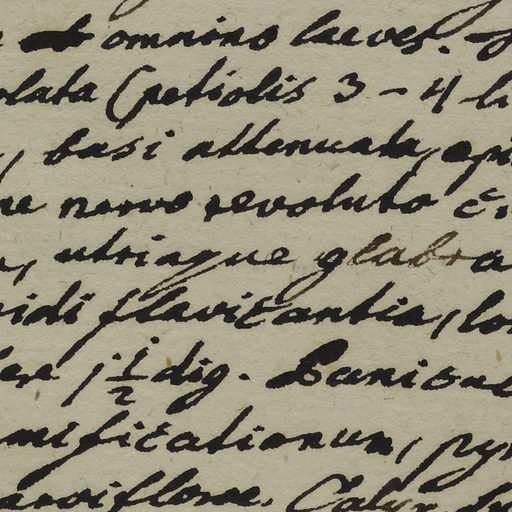 omnino laeves.
olata (petiolis 3-4 li
, basi attenuata, api
ne nervo revoluto
, utrinque glabra
idi flavicantia, lo
1 1/2 dig. Panicul
mificationum, pyr
parviflorae. Calyx